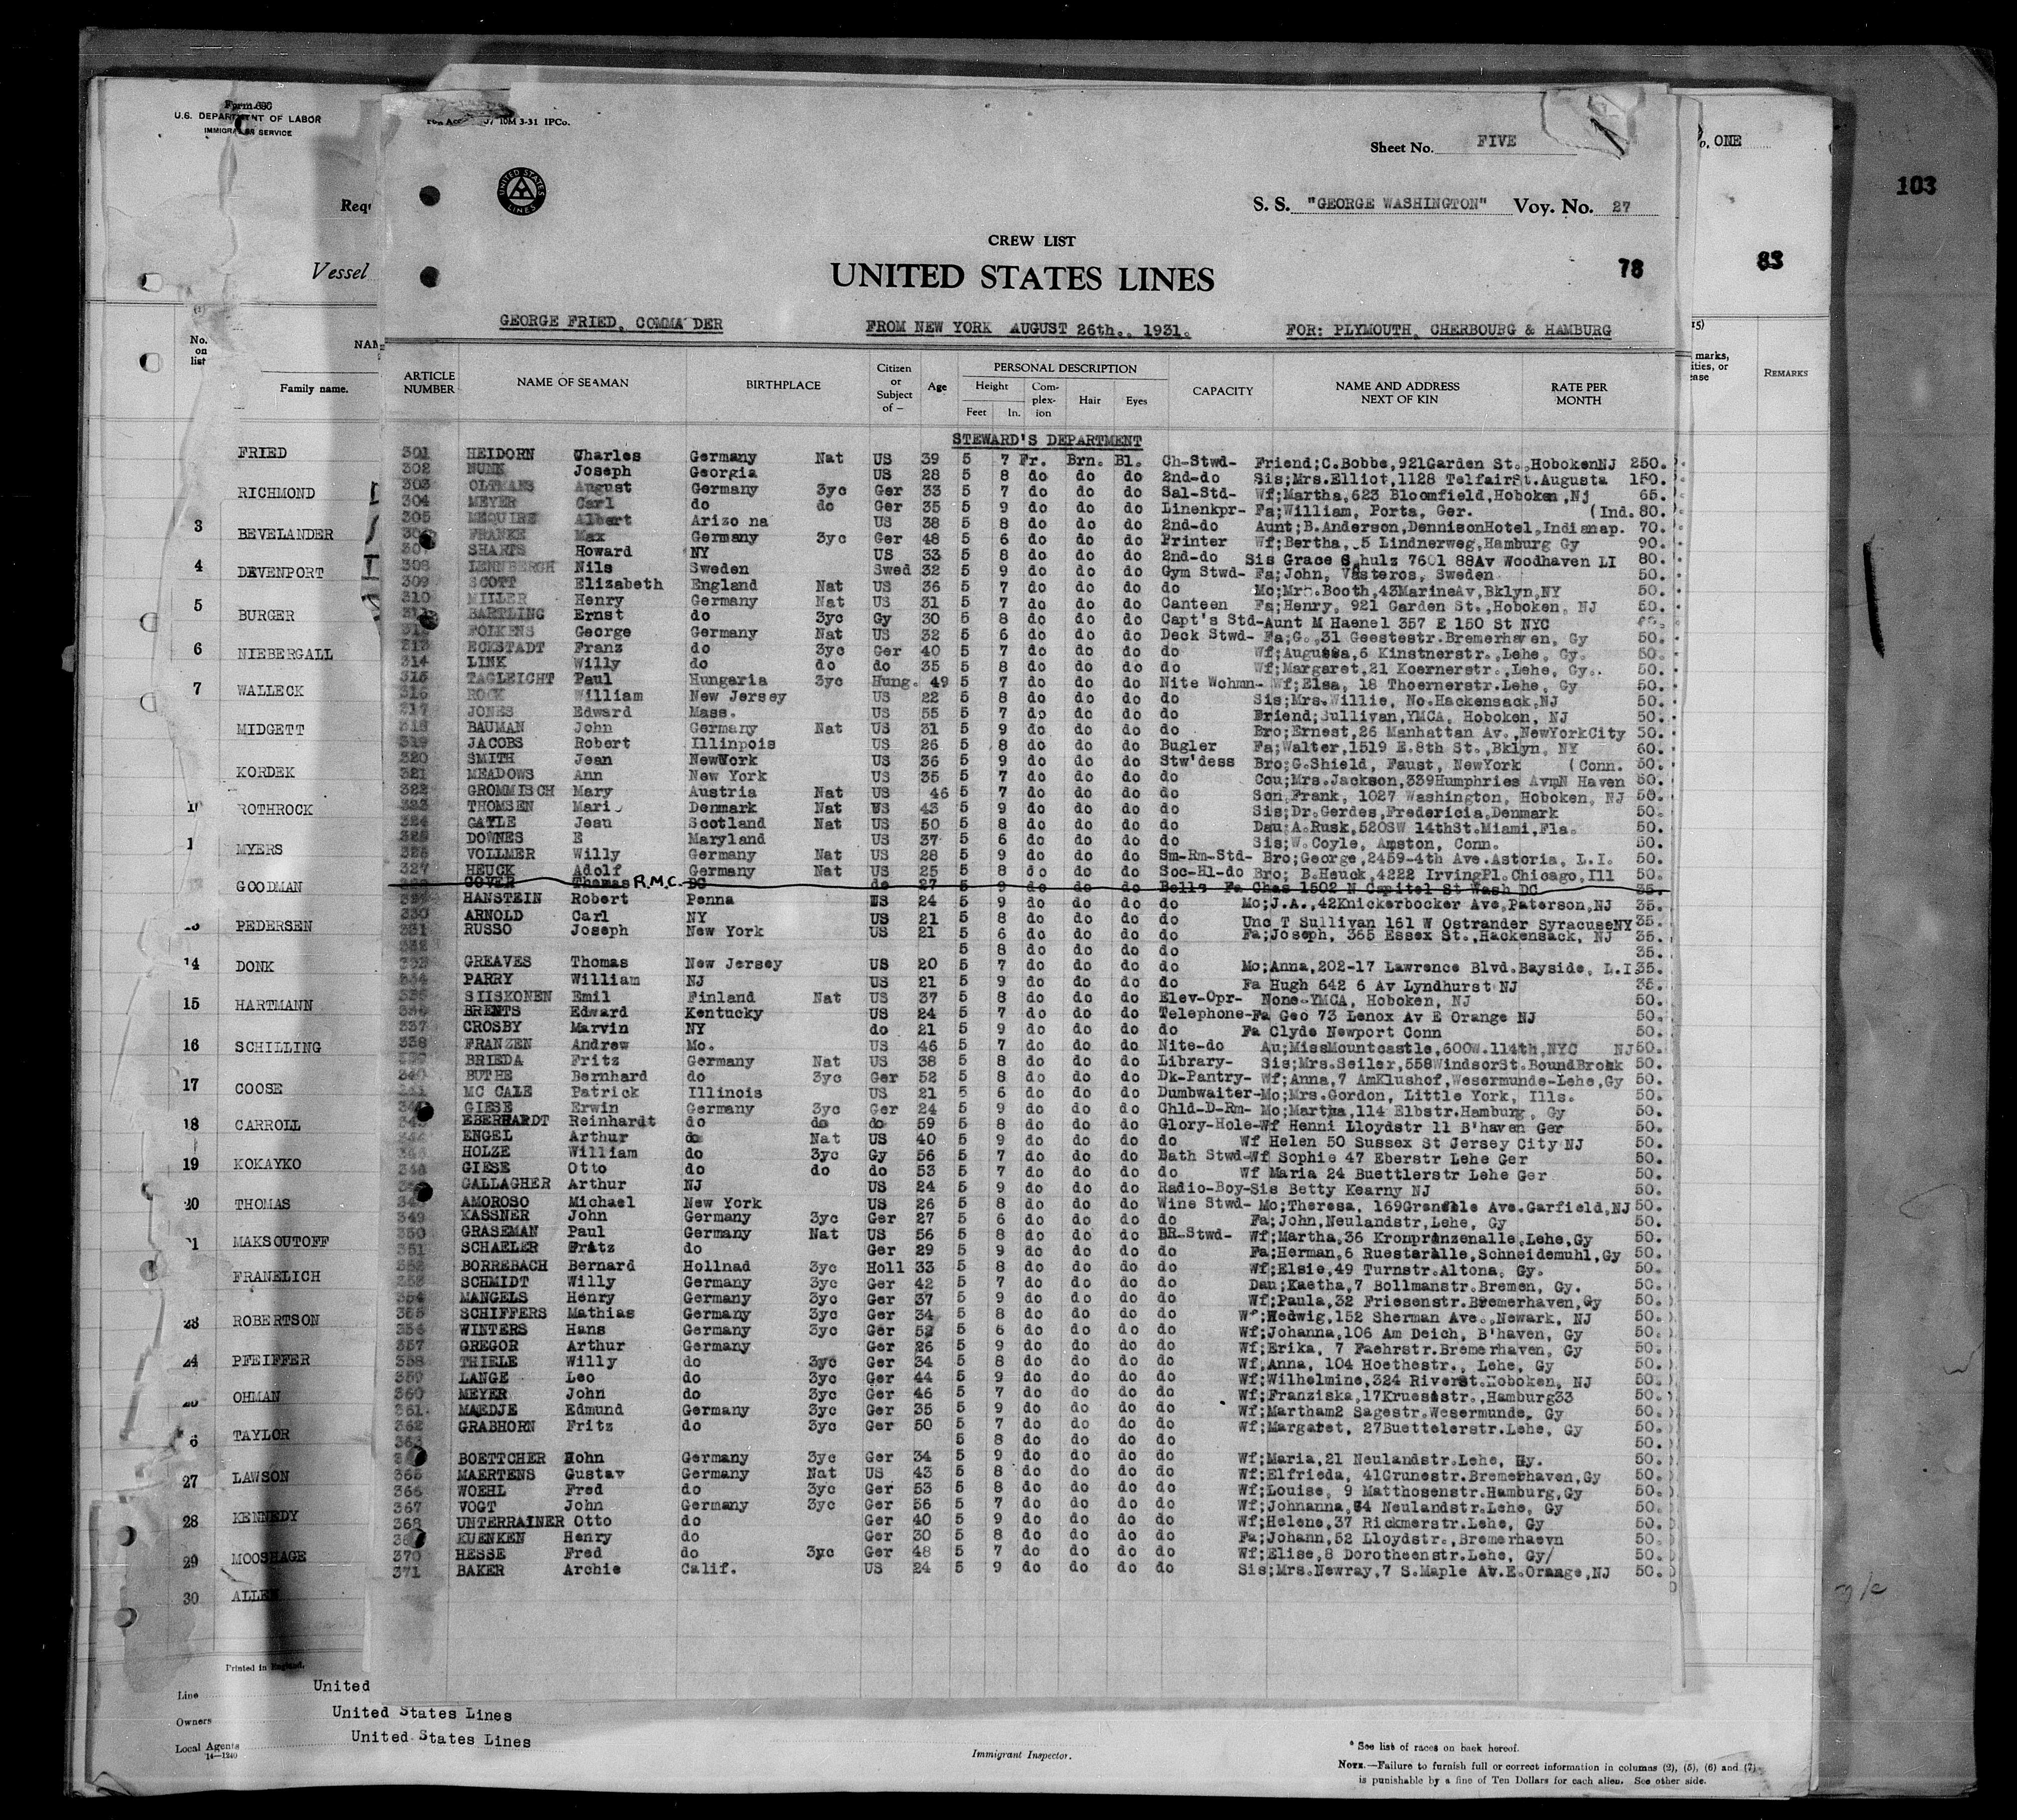 Form 680
U.S. DEPARTMENT OF LABOR
IMMIGRA SERVICE
Vessel
No. on list
Family name.
FRIED
RICHMOND
3 BEVELANDER
4 DEVENPORT
5 BURGER
6 NIEBERGALL
7 WALLECK
MIDGETT
KORDEK
ROTHROCK
MYERS
GOODMAN
PEDERSEN
14 DONK
15 HARTMANN
16 SCHILLING
17 COOSE
18 CARROLL
19 KOKAYKO
20 THOMAS
MAKSOUTOFF
FRANELICH
ROBERTSON
24 PFEIFFER
OHMAN
6 TAYLOR
27 LAWSON
28 KENNEDY
29 MOOSHAGE
30 ALLEN
Printed in England.
Line United
Owners United States Lines
Local Agents United States Lines
14—1240
10M 3-31 IPCo.
Sheet No. FIVE
UNITED STATES LINES
S. S. "GEORGE WASHINGTON" Voy. No. 27
CREW LIST
UNITED STATES LINES
78
GEORGE FRIED, COMMA DER FROM NEW YORK AUGUST 26th., 1931. FOR: PLYMOUTH, CHERBOURG & HAMBURG
ARTICLE NUMBER NAME OF SEAMAN BIRTHPLACE Citizen or Subject of — Age PERSONAL DESCRIPTION Height Feet In. Com-plex-ion Hair Eyes CAPACITY NAME AND ADDRESS NEXT OF KIN RATE PER MONTH
STEWARD'S DEPARTMENT
301 HEIDORN Charles Germany Nat US 39 5 7 Fr. Brn. Bl. Ch-Stwd- Friend;C.Bobbe,921Garden St.,HobokenNJ 250.
302 NUNK Joseph Georgia US 28 5 8 do do do 2nd-do Sis;Mrs.Elliot,1128 Telfair St.Augusta 150.
303 OLTMANS August Germany 3yc Ger 33 5 7 do do do Sal-Std- Wf;Martha,623 Bloomfield,Hoboken,Nj 65.
304 MEYER Carl do do Ger 35 5 9 do do do Linenkpr- Fa;William, Porta, Ger. (Ind. 80.
305 MEQUIRE Albert Arizo na US 38 5 8 do do do 2nd-do Aunt;B.Anderson,DennisonHotel,Indianap. 70.
306 FRANKE Max Germany 3yc Ger 48 5 6 do do do Printer Wf;Bertha, 5 Lindnerweg,Hamburg Gy 90.
307 SHARTS Howard NY US 33 5 8 do do do 2nd-do Sis Grace Schulz 7601 88Av Woodhaven LI 80.
308 LENNBERGH Nils Sweden Swed 32 5 9 do do do Gym Stwd- Fa;John, Vasteros, Sweden 50.
309 SCOTT Elizabeth England Nat US 36 5 7 do do do do Mo;Mrs.Booth,43MarineAv,Bklyn,NY 50.
310 MILLER Henry Germany Nat US 31 5 7 do do do Canteen Fa;Henry, 921 Garden St.,Hoboken, NJ 50.
311 BARTLING Ernst do 3yc Gy 30 5 8 do do do Capt's Std-Aunt M Haenel 357 E 150 St NYC
312 FOLKENS George Germany Nat US 32 5 6 do do do Deck Stwd- Fa;G.,31 Geestestr.Bremerhaven, Gy 50.
313 ECKSTADT Franz do 3yc Ger 40 5 7 do do do do Wf;Augusta,6 Kinstnerstr.,Lehe, Gy. 50.
314 LINK Willy do do do 35 5 8 do do do do Wf;Margaret,21 Koernerstr.,Lehe, Gy. 50.
315 TAGLEICHT Paul Hungaria 3yc Hung. 49 5 7 do do do Nite Wchmn- Wf;Elsa, 18 Thoernerstr.Lehe, Gy 50.
316 ROCK William New Jersey US 22 5 8 do do do do Sis;Mrs.Willie, No.Hackensack,NJ 50.
317 JONES Edward Mass. US 55 5 7 do do do do Friend;Sullivan,YMCA, Hoboken, NJ 50.
318 BAUMAN John Germany Nat US 31 5 9 do do do do Bro;Ernest,26 Manhattan Av.,NewYorkCity 50.
319 JACOBS Robert Illinpois US 26 5 8 do do do Bugler Fa;Walter,1519 E.8th St.,Bklyn, NY 60.
320 SMITH Jean NewYork US 36 5 9 do do do Stw'dess Bro;G.Shield, Faust, NewYork (Conn. 50.
321 MEADOWS Ann New York US 35 5 7 do do do do Cou;Mrs.Jackson,339Humphries AvmN Haven 50.
322 GROMMISCH Mary Austria Nat US 46 5 7 do do do do Son,Frank, 1027 Washington, Hoboken, NJ 50.
323 THOMSEN Mari Denmark Nat US 43 5 9 do do do do Sis;Dr.Gerdes,Fredericia,Denmark 50.
324 GAYLE Jean Scotland Nat US 50 5 8 do do do do Dau;A.Rusk,520SW 14thSt.Miami,Fla. 50.
325 DOWNES E Maryland US 37 5 6 do do do do Sis;W.Coyle, Amston, Conn. 50.
326 VOLLMER Willy Germany Nat US 28 5 9 do do do Sm-Rm-Std- Bro;George,2459-4th Ave.Astoria, L.I. 50.
327 HEUCK Adolf Germany Nat US 25 5 8 do do do Soc-Hl-do Bro; B.Heuck,4222 IrvingPl.Chicago,Ill 50.
328 COVER Thomas R.M.C. DC do 27 5 9 do do do Bells Fa Chas 1502 N Capitol St Wash DC 35.
329 HANSTEIN Robert Penna US 24 5 9 do do do do Mo;J.A.,42Knickerbocker Ave,Paterson,NJ 35.
330 ARNOLD Carl NY US 21 5 8 do do do do Unc T Sullivan 161 W Ostrander SyracuseNY 35.
331 RUSSO Joseph New York US 21 5 6 do do do do Fa;Joseph, 365 Essex St.,Hackensack, NJ 35.
332 5 8 do do do do 35.
333 GREAVES Thomas New Jersey US 20 5 7 do do do do Mo;Anna,202-17 Lawrence Blvd.Bayside, L.I 35.
334 PARRY William NJ US 21 5 9 do do do do Fa Hugh 642 6 Av Lyndhurst NJ 35.
335 SIISKONEN Emil Finland Nat US 37 5 8 do do do Elev-Opr- None-YMCA, Hoboken, NJ 50.
336 BRENTS Edward Kentucky US 24 5 7 do do do Telephone-Fa Geo 73 Lenox Av E Orange NJ 50.
337 CROSBY Marvin NY do 21 5 9 do do do do Fa Clyde Newport Conn 50.
338 FRANZEN Andrew Mo. US 46 5 7 do do do Nite-do Au;MissMountcastle,600W.114th,NYC NJ 50.
339 BRIEDA Fritz Germany Nat US 38 5 8 do do do Library- Sis;Mrs.Seiler,558WindsorSt.BoundBrook 50.
340 BUTHE Bernhard do 3yc Ger 52 5 8 do do do Dk-Pantry- Wf;Anna,7 AmKlushof,Wesermunde-Lehe,Gy 50.
341 MC CALE Patrick Illinois US 21 5 6 do do do Dumbwaiter-Mo;Mrs.Gordon, Little York, Ills. 50.
342 GIESE Erwin Germany 3yc Ger 24 5 9 do do do Chld-D-Rm- Mo;Martha,114 Elbstr.Hamburg, Gy 50.
343 EBERHARDT Reinhardt do do do 59 5 8 do do do Glory-Hole-Wf Henni Lloydstr 11 B'haven Ger 50.
344 ENGEL Arthur do Nat US 40 5 9 do do do do Wf Helen 50 Sussex St Jersey City NJ 50.
HOLZE William do 3yc Gy 56 5 7 do do do Bath Stwd-Wf Sophie 47 Eberstr Lehe Ger 50.
GIESE Otto do do do 53 5 7 do do do do Wf Maria 24 Buettlerstr Lehe Ger 50.
GALLAGHER Arthur NJ US 24 5 9 do do do Radio-Boy-Sis Betty Kearny NJ 50.
AMOROSO Michael New York US 26 5 8 do do do Wine Stwd- Mo;Theresa, 169Grenville Ave.Garfield,NJ 50.
349 KASSNER John Germany 3yc Ger 27 5 6 do do do do Fa;John,Neulandstr,Lehe, Gy 50.
350 GRASEMAN Paul Germany Nat US 56 5 8 do do do BR-Stwd- Wf;Martha,36 Kronpranzenalle,Lehe,Gy 50.
351 SCHAELER Fritz do Ger 29 5 9 do do do do Fa;Herman,6 Ruesteralle,Schneidemuhl,Gy 50.
352 BORREBACH Bernard Hollnad 3yc Holl 33 5 8 do do do do Wf;Elsie,49 Turnstr.Altona, Gy. 50.
353 SCHMIDT Willy Germany 3yc Ger 42 5 7 do do do do Dau;Kaetha,7 Bollmanstr.Bremen, Gy. 50.
354 MANGELS Henry Germany 3yc Ger 37 5 9 do do do do Wf;Paula,32 Friesenstr.Bremerhaven,Gy 50.
355 SCHIFFERS Mathias Germany 3yc Ger 34 5 8 do do do do Wf;Hedwig,152 Sherman Ave.,Newark, NJ 50.
356 WINTERS Hans Germany 3yc Ger 52 5 6 do do do do Wf;Johanna,106 Am Deich, B'haven, Gy 50.
357 GREGOR Arthur Germany Ger 26 5 9 do do do do Wf;Erika, 7 Faehrstr.Bremerhaven, Gy 50.
358 THIELE Willy do 3yc Ger 34 5 8 do do do do Wf,Anna, 104 Hoethestr., Lehe, Gy 50.
359 LANGE Leo do 3yc Ger 44 5 9 do do do do Wf;Wilhelmine,324 Riverst.Hoboken, NJ 50.
360 MEYER John do 3yc Ger 46 5 7 do do do do Wf;Franziska,17Kruesistr.,Hamburg33 50.
361 MAEDJE Edmund Germany 3yc Ger 35 5 9 do do do do Wf;Martham2 Sagestr.Wesermunde, Gy 50.
362 GRABHORN Fritz do 3yc Ger 50 5 7 do do do do Wf;Margaret, 27Buettelerstr.Lehe, Gy 50.
363 5 8 do do do do 50.
BOETTCHER Hohn Germany 3yc Ger 34 5 9 do do do do Wf;Maria,21 Neulandstr.Lehe, Hy. 50.
365 MAERTENS Gustav Germany Nat US 43 5 8 do do do do Wf;Elfrieda, 41Grunestr.Bremerhaven,Gy 50.
366 WOEHL Fred do 3yc Ger 53 5 8 do do do do Wf;Louise, 9 Matthosenstr.Hamburg,Gy 50.
367 VOGT John Germany 3yc Ger 56 5 7 do do do do Wf;Johnanna,84 Neulandstr.Lehe, Gy 50.
368 UNTERRAINER Otto do Ger 40 5 9 do do do do Wf;Helene,37 Rickmerstr.Lehe, Gy 50.
KUENKEN Henry do Ger 30 5 8 do do do do Fa;Johann,52 Lloydstr.,Bremerhaevn 50.
370 HESSE Fred do 3yc Ger 48 5 7 do do do do Wf;Elise,8 Dorotheenstr.Lehe, Gy/ 50.
371 BAKER Archie Calif. US 24 5 9 do do do do Sis;Mrs.Newray,7 S.Maple Av.E.Orange,NJ 50.
ONE
103
83
marks,
REMARKS
Immigrant Inspector.
* See list of races on back hereof.
NOTE.—Failure to furnish full or correct information in columns (2), (5), (6) and (7)
is punishable by a fine of Ten Dollars for each alien. See other side.